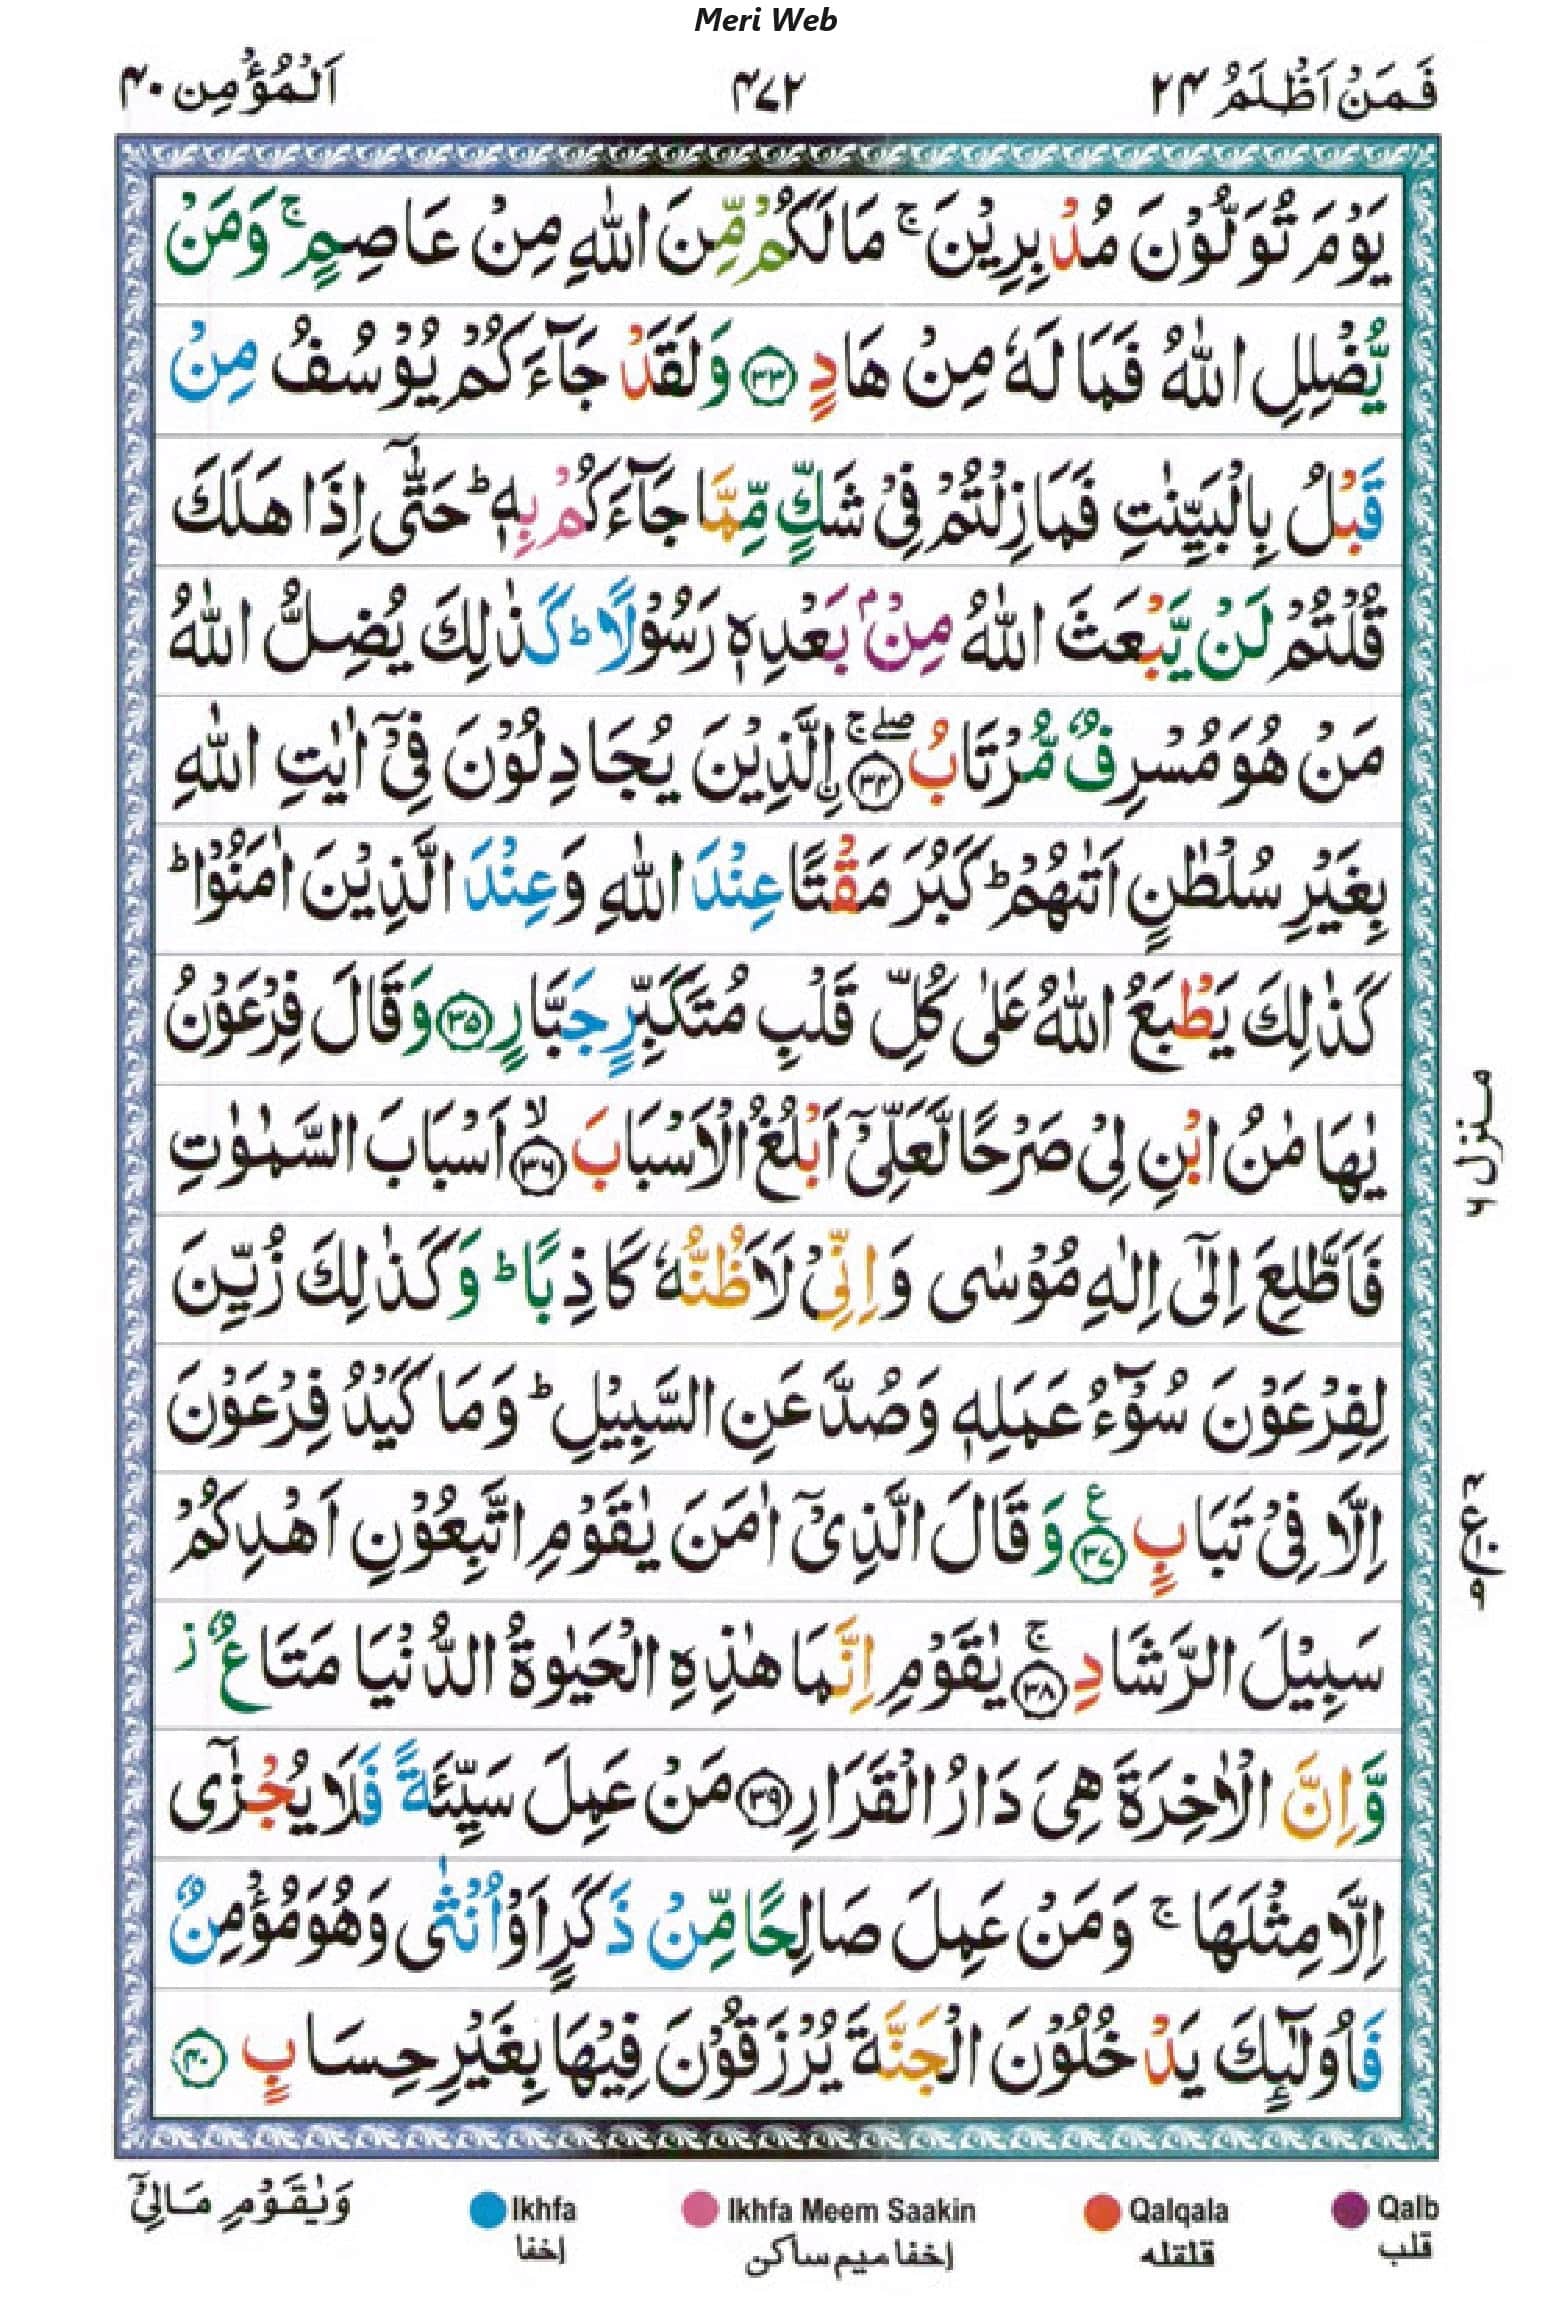 Meri Web
فَمَنْ اَظْلَمُ ۲۴
۴۷۲
اَلْمُؤْمِن ۴۰
يَوْمَ تُوَلُّوْنَ مُدْبِرِيْنَ ۚ مَا لَكُمْ مِّنَ اللّٰهِ مِنْ عَاصِمٍ ۚ وَمَنْ
يُّضْلِلِ اللّٰهُ فَمَا لَهٗ مِنْ هَادٍ ۝۳۳ وَلَقَدْ جَآءَكُمْ يُوْسُفُ مِنْ
قَبْلُ بِالْبَيِّنٰتِ فَمَا زِلْتُمْ فِيْ شَكٍّ مِّمَّا جَآءَكُمْ بِهٖ ؕ حَتّٰٓى اِذَا هَلَكَ
قُلْتُمْ لَنْ يَّبْعَثَ اللّٰهُ مِنْۢ بَعْدِهٖ رَسُوْلًا ؕ كَذٰلِكَ يُضِلُّ اللّٰهُ
مَنْ هُوَ مُسْرِفٌ مُّرْتَابُ ۝۳۴ ۖۚ اۨلَّذِيْنَ يُجَادِلُوْنَ فِيْٓ اٰيٰتِ اللّٰهِ
بِغَيْرِ سُلْطٰنٍ اَتٰىهُمْ ؕ كَبُرَ مَقْتًا عِنْدَ اللّٰهِ وَعِنْدَ الَّذِيْنَ اٰمَنُوْا ؕ
كَذٰلِكَ يَطْبَعُ اللّٰهُ عَلٰى كُلِّ قَلْبِ مُتَكَبِّرٍ جَبَّارٍ ۝۳۵ وَقَالَ فِرْعَوْنُ
يٰهَامٰنُ ابْنِ لِيْ صَرْحًا لَّعَلِّيْٓ اَبْلُغُ الْاَسْبَابَ ۝۳۶ ۙ اَسْبَابَ السَّمٰوٰتِ
فَاَطَّلِعَ اِلٰٓى اِلٰهِ مُوْسٰى وَاِنِّيْ لَاَظُنُّهٗ كَاذِبًا ؕ وَكَذٰلِكَ زُيِّنَ
لِفِرْعَوْنَ سُوْٓءُ عَمَلِهٖ وَصُدَّ عَنِ السَّبِيْلِ ؕ وَمَا كَيْدُ فِرْعَوْنَ
اِلَّا فِيْ تَبَابٍ ۝۳۷ ع وَقَالَ الَّذِيْٓ اٰمَنَ يٰقَوْمِ اتَّبِعُوْنِ اَهْدِكُمْ
سَبِيْلَ الرَّشَادِ ۝۳۸ ۚ يٰقَوْمِ اِنَّمَا هٰذِهِ الْحَيٰوةُ الدُّنْيَا مَتَاعٌ ز
وَّاِنَّ الْاٰخِرَةَ هِيَ دَارُ الْقَرَارِ ۝۳۹ مَنْ عَمِلَ سَيِّئَةً فَلَا يُجْزٰٓى
اِلَّا مِثْلَهَا ۚ وَمَنْ عَمِلَ صَالِحًا مِّنْ ذَكَرٍ اَوْ اُنْثٰى وَهُوَ مُؤْمِنٌ
فَاُولٰٓئِكَ يَدْخُلُوْنَ الْجَنَّةَ يُرْزَقُوْنَ فِيْهَا بِغَيْرِ حِسَابٍ ۝۴۰
منزل ۶
وَيٰقَوْمِ مَالِيْٓ
Ikhfa
اخفا
Ikhfa Meem Saakin
اخفا میم ساکن
Qalqala
قلقله
Qalb
قلب